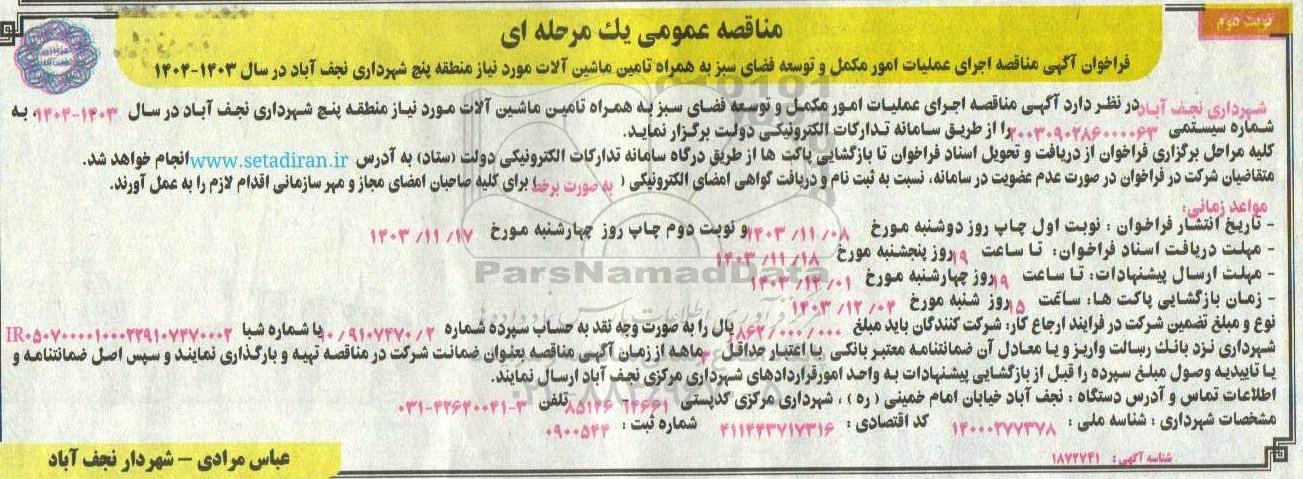 نوبت دوم
مناقصه عمومی یك مرحله ای
فراخوان آگهی مناقصه اجرای عملیات امور مکمل و توسعه فضای سبز به همراه تامین ماشین آلات مورد نیاز منطقه پنج شهرداری نجف آباد در سال ۱۴۰۳-۱۴۰۴
شهرداری نجف آباد در نظر دارد آگهی مناقصه اجرای عملیات امور مکمل و توسعه فضای سبز به همراه تامین ماشین آلات مورد نیاز منطقه پنج شهرداری نجف آباد در سال ۱۴۰۳-۱۴۰۴، به
شماره سیستمی ۲۰۰۳۰۹۰۲۸۶۰۰۰۰۶۳ را از طریق سامانه تدارکات الکترونیکی دولت برگزار نماید.
کلیه مراحل برگزاری فراخوان از دریافت و تحویل اسناد فراخوان تا بازگشایی پاکت ها از طریق درگاه سامانه تدارکات الکترونیکی دولت (ستاد) به آدرس www.setadiran.ir انجام خواهد شد.
متقاضیان شرکت در فراخوان در صورت عدم عضویت در سامانه، نسبت به ثبت نام و دریافت گواهی امضای الکترونیکی ( به صورت برخط) برای کلیه صاحبان امضای مجاز و مهر سازمانی اقدام لازم را به عمل آورند.
مواعد زمانی:
- تاریخ انتشار فراخوان : نوبت اول چاپ روز دوشنبه مورخ ۱۴۰۳/۱۱/۰۸ و نوبت دوم چاپ روز چهارشنبه مورخ ۱۴۰۳/۱۱/۱۷
- مهلت دریافت اسناد فراخوان: تا ساعت ۱۹ روز پنجشنبه مورخ ۱۴۰۳/۱۱/۱۸
- مهلت ارسال پیشنهادات: تا ساعت ۱۹ روز چهارشنبه مورخ ۱۴۰۳/۱۲/۰۱
- زمان بازگشایی پاکت ها: ساعت ۱۵ روز شنبه مورخ ۱۴۰۳/۱۲/۰۴
نوع و مبلغ تضمین شرکت در فرایند ارجاع کار: شرکت کنندگان باید مبلغ ۸۶۲/۰۰۰/۰۰۰ ریال را به صورت وجه نقد به حساب سپرده شماره ۱۰/۹۱۰۷۴۷۰/۲ با شماره شبا IR۰۵۰۷۰۰۰۰۱۰۰۰۲۲۹۱۰۷۴۷۰۰۰۲
شهرداری نزد بانك رسالت واریز و یا معادل آن ضمانتنامه معتبر بانکی با اعتبار حداقل ۳ ماهه از زمان آگهی مناقصه بعنوان ضمانت شرکت در مناقصه تهیه و بارگذاری نمایند و سپس اصل ضمانتنامه و
یا تاییدیه وصول مبلغ سپرده را قبل از بازگشایی پیشنهادات به واحد امورقراردادهای شهرداری مرکزی نجف آباد ارسال نمایند.
اطلاعات تماس و آدرس دستگاه : نجف آباد خیابان امام خمینی (ره) ، شهرداری مرکزی کدپستی ۱۴۶۶۱-۸۵۱۴۶ تلفن ۳-۰۳۱-۴۲۶۴۰۰۴۱
مشخصات شهرداری : شناسه ملی : ۱۴۰۰۰۲۷۷۳۷۸ کد اقتصادی : ۴۱۱۴۴۳۷۱۷۳۱۶ شماره ثبت : ۰۹۰۰۵۴۴
شناسه آگهی: ۱۸۷۲۷۴۱
عباس مرادی – شهردار نجف آباد
ParsNamadData